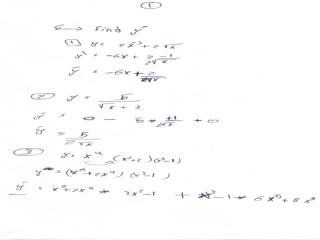 ①
5 → find y'
① y = 2x³ + 2√x
y' = -6x + 2 -1/2√x
y' = -6x + 2/2√x
② y = 5/√x + 3
y' = 0 - 5 * +1/2√x + 0
y' = 5/2√x
③ y = x⁴ (x²+2)(x³-1)
y = (x⁶+2x⁴)(x³-1)
y' = x⁶+2x⁴ * 3x²-1 + x³-1 * 6x⁵+8x³